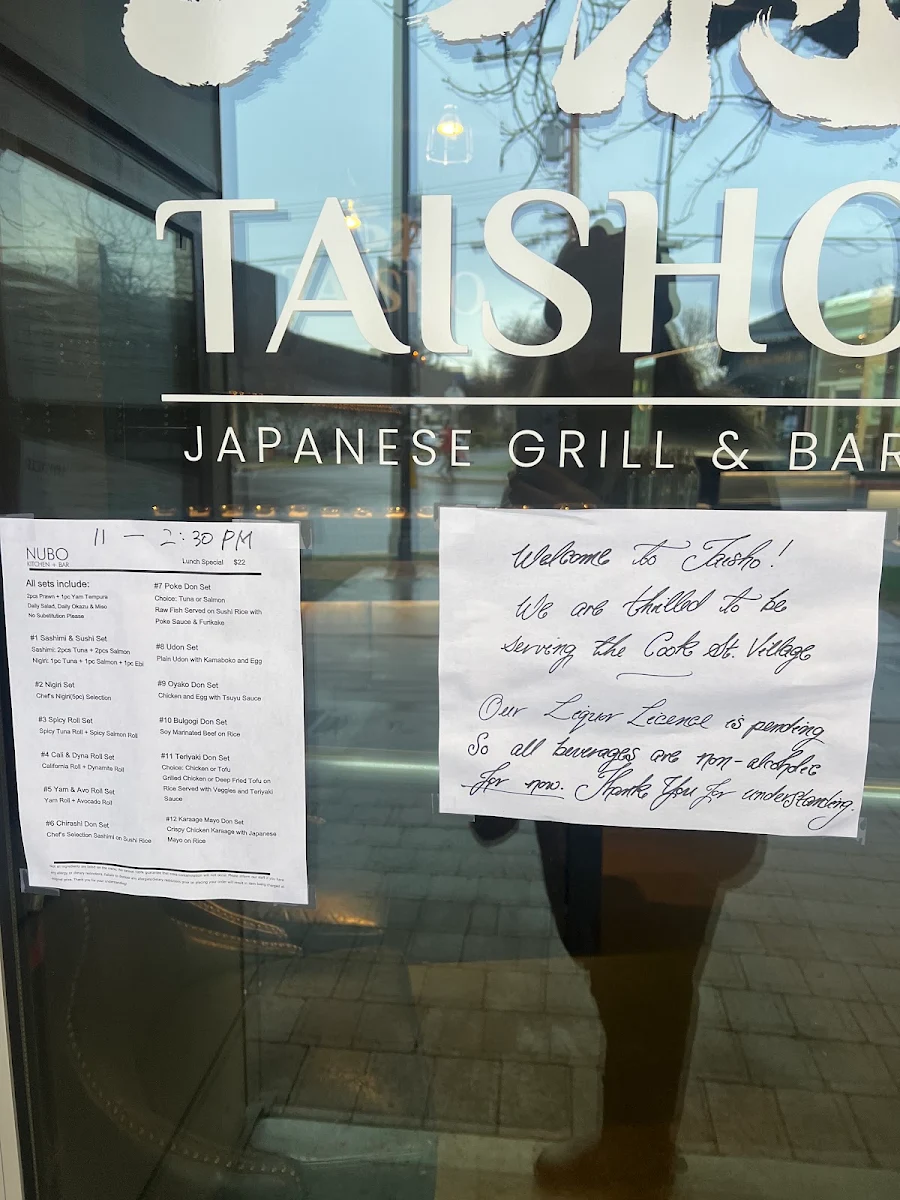 TAISHO
JAPANESE GRILL & BAR
11 — 2:30 PM
NUBO
KITCHEN + BAR
Lunch Special $22
All sets include:
2pcs Prawn + 1pc Yam Tempura
Daily Salad, Daily Okazu & Miso
No Substitution Please
#1 Sashimi & Sushi Set
Sashimi: 2pcs Tuna + 2pcs Salmon
Nigiri: 1pc Tuna + 1pc Salmon + 1pc Ebi
#2 Nigiri Set
Chef's Nigiri(5pc) Selection
#3 Spicy Roll Set
Spicy Tuna Roll + Spicy Salmon Roll
#4 Cali & Dyna Roll Set
California Roll + Dynamite Roll
#5 Yam & Avo Roll Set
Yam Roll + Avocado Roll
#6 Chirashi Don Set
Chef's Selection Sashimi on Sushi Rice
#7 Poke Don Set
Choice: Tuna or Salmon
Raw Fish Served on Sushi Rice with
Poke Sauce & Furikake
#8 Udon Set
Plain Udon with Kamaboko and Egg
#9 Oyako Don Set
Chicken and Egg with Tsuyu Sauce
#10 Bulgogi Don Set
Soy Marinated Beef on Rice
#11 Teriyaki Don Set
Choice: Chicken or Tofu
Grilled Chicken or Deep Fried Tofu on
Rice Served with Veggies and Teriyaki
Sauce
#12 Karaage Mayo Don Set
Crispy Chicken Karaage with Japanese
Mayo on Rice
Welcome to Taisho!
We are thrilled to be
serving the Cook St. Village
Our Liquor Licence is pending
So all beverages are non-alcoholic
for now. Thank You for understanding.